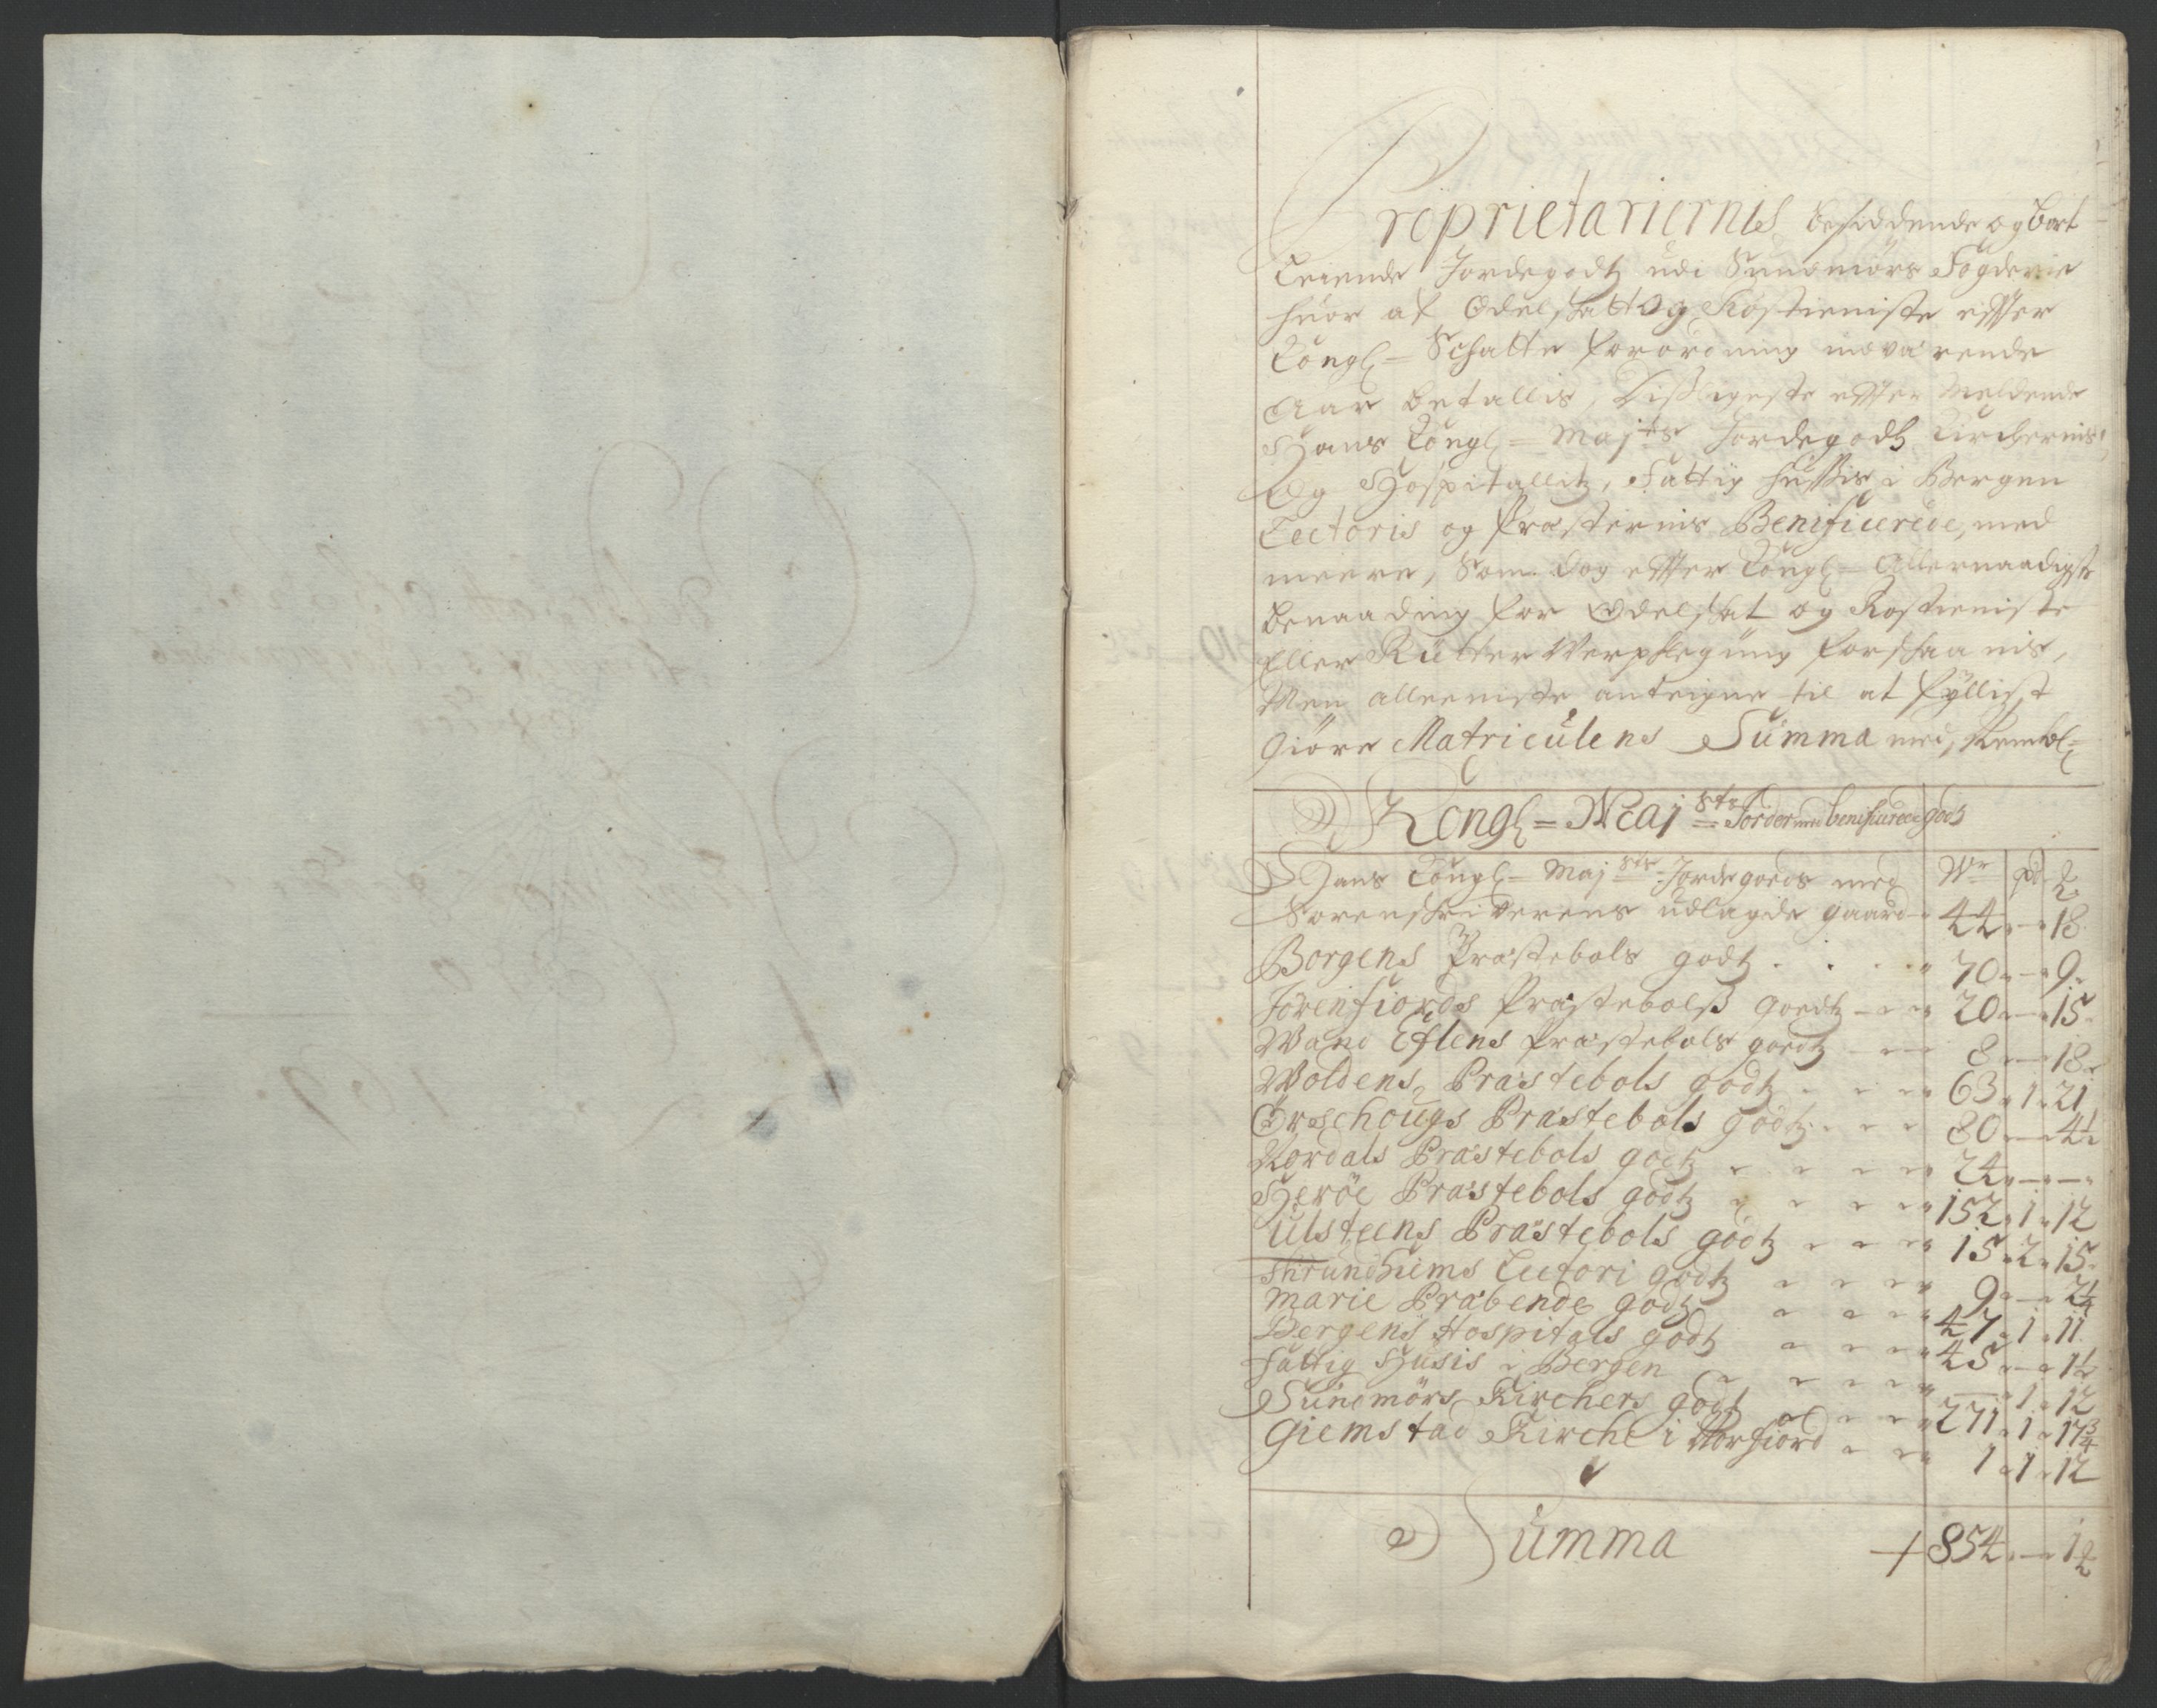 Proprietariernis besiddende og bort
Leiende Jordegodtz udi Sundmörs Fogderie
huor af Odelskatt og Rostieniste efter
Kongl= Schatte forordning nerværende
Aar betallis, Disligeste efter Meldende
Hans Kongl= Majts Jordegodtz Kirchernis,
Og Hospitallitz, Fattig hussis i Bergen
Lectoris og Præsternis Benificerede, med
meere, Som dog efter Kongl= Allernaadigste
benaading for Odelskat og Rostieniste
Eller Rütter Verpflegung forskaanis,
Men alleeniste anteigne til at fyllist
Giöre Matriculens Summa med, Nembl=
Kongl= Maj sts Jorder med benificerede godz
Hans Kongl= Maj sts Jordegoeds med Wr pd L
Sorenskriverens udlagde gaard 44 — 18
Borgens Præstebols godtz 70 — 9
Jörenfiords Præstebolss goedtz 20 — 15
Wand Eflens Præstebols goedtz 8 — 18
Woldens Præstebols godtz 63 1 21
Örschougs Præstebols godtz 80 — 4½
Nordals Præstebols godtz 24 — —
Heröe Præstebols godtz 152 1 12
Ulsteens Præstebols godtz 15 2 15
Thrundhiems Lectori godtz 9 — 2¼
Marie Præbende godtz 47 1 11
Bergens Hospitals godtz 45 — 1½
Fattig Husis i Bergen — 1 12
Sundmörs Kirchers godt 271 1 17¾
Giemstad Kirche i Norfiord 1 1 12
Summa 854 — 12